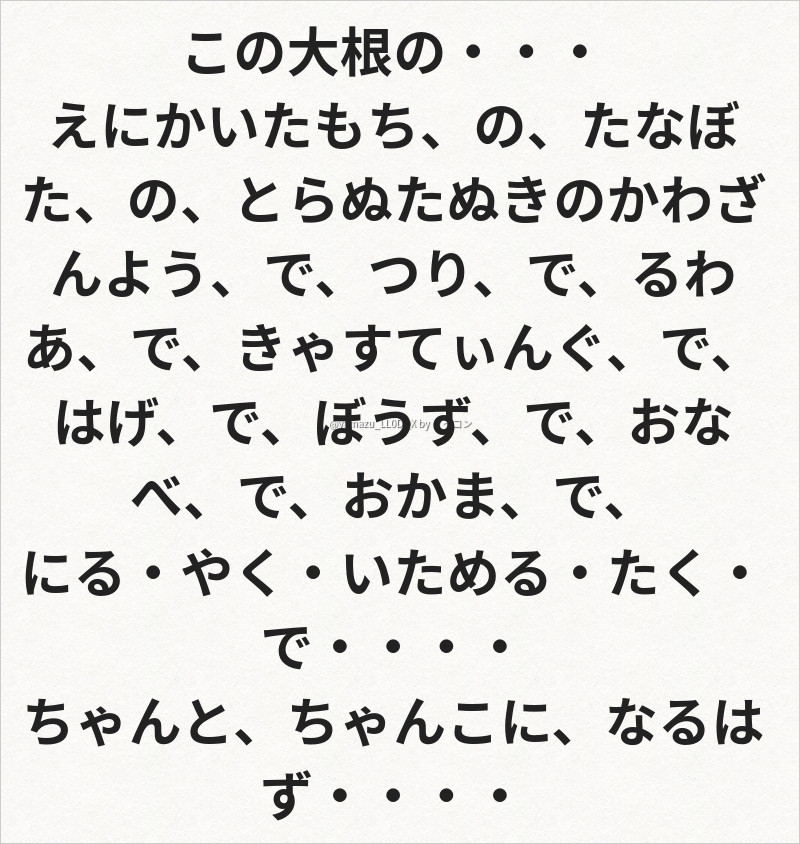 この大根の・・・
えにかいたもち、の、たなぼ
た、の、とらぬたぬきのかわざ
んよう、で、つり、で、るわ
あ、で、きゃすてぃんぐ、で、
はげ、で、ぼうず、で、おな
べ、で、おかま、で、
にる・やく・いためる・たく・
で・・・・
ちゃんと、ちゃんこに、なるは
ず・・・・